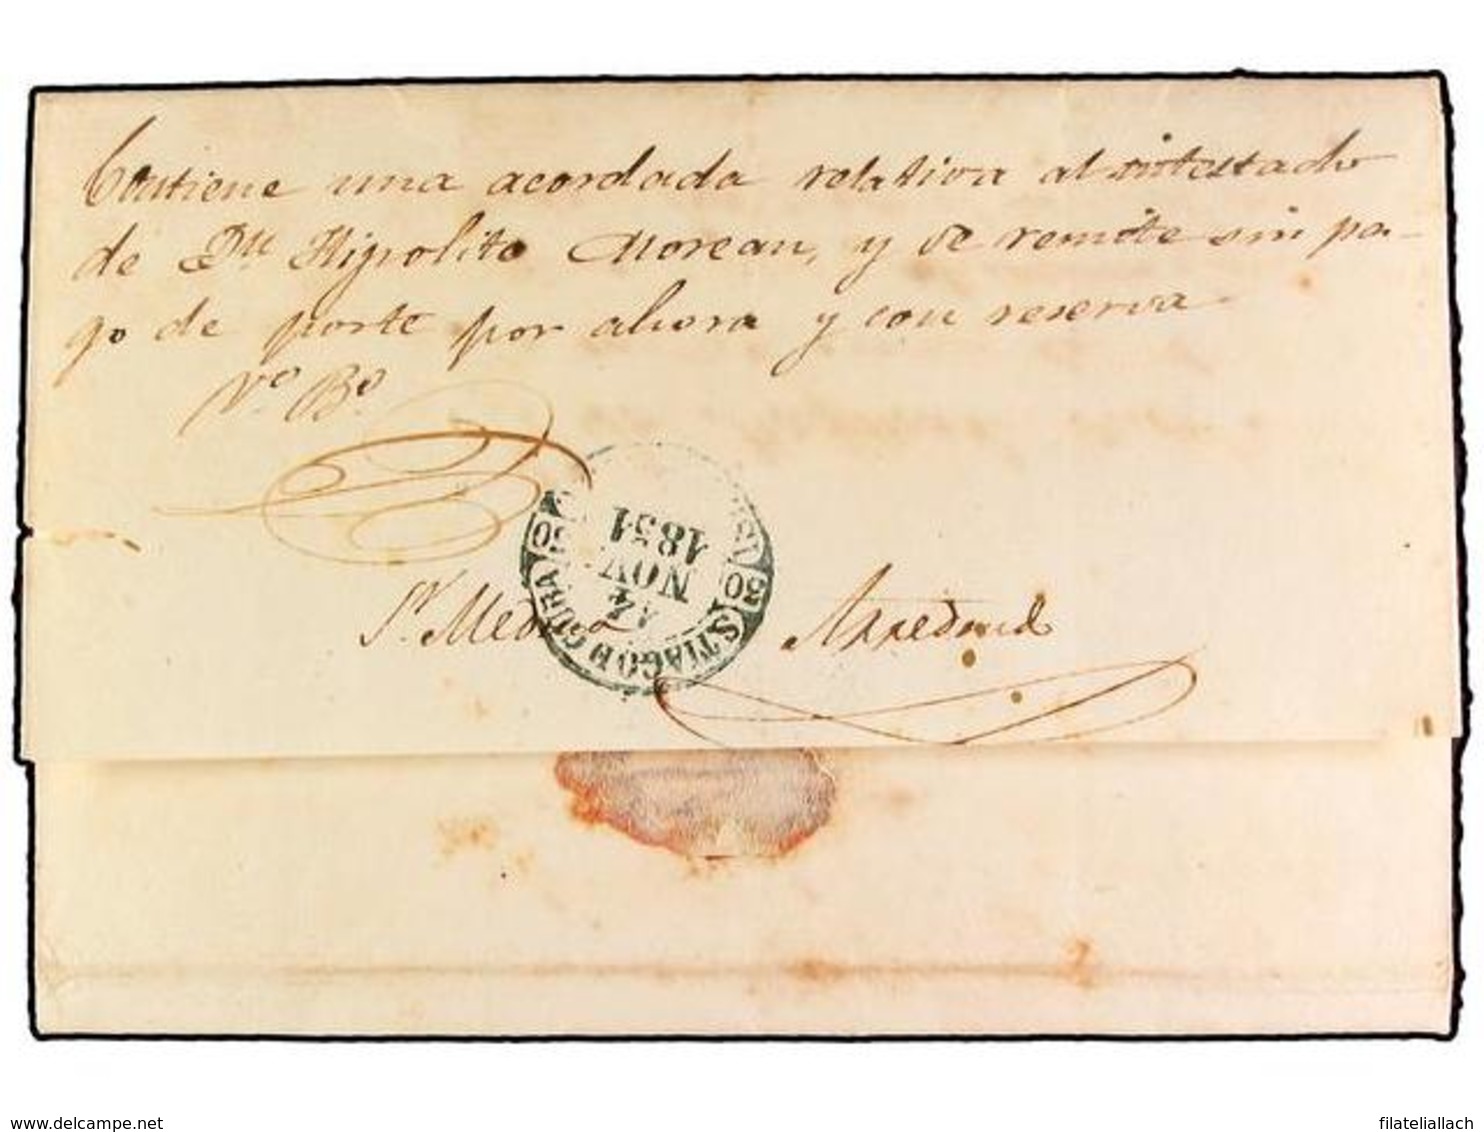 Contiene una acordada relativa al intestado
de Dn Hipolito Morean, y se remite sin pa-
go de porte por ahora y con reserva
Vo. Bo.
Arredond
S.TIAGO CUBA
30 30
14
NOV
1851
www.delcampe.net
filateliallach